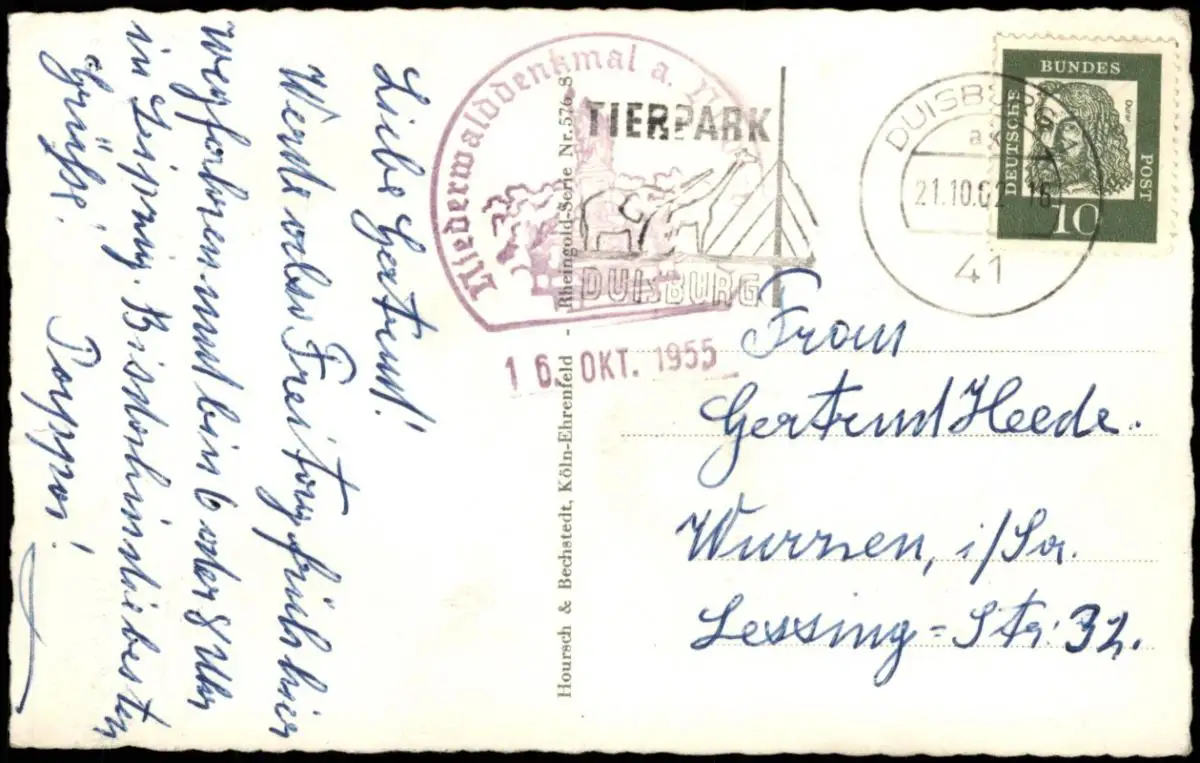 Liebe Gertrud!
Werde also Freitag früh hier
wegfahren und bin 6 oder 8 Uhr
in Leipzig. Bis dahin liebesten
Grüße!
Pappa!
Niederwalddenkmal a.
16. OKT. 1955
Rheingold-Serie Nr. 576 S
Hoursch & Bechstedt, Köln-Ehrenfeld -
TIERPARK
DUISBURG
DUISBURG
21.10.62-16
41
DEUTSCHE
BUNDES
POST
Dürer
10
Frau
Gertrud Heede.
Wurzen, i/Sa.
Lessing=Str: 32.